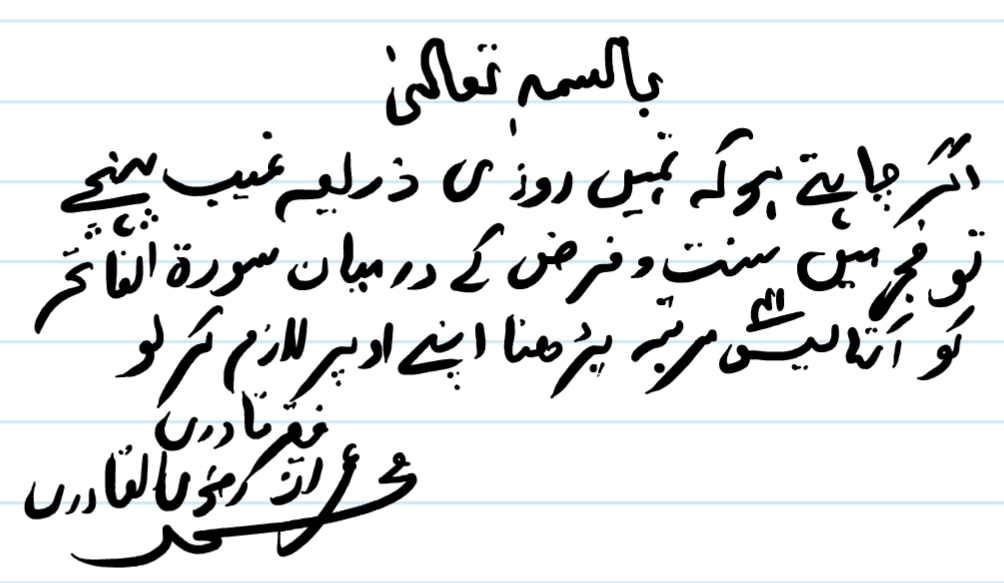 بالسمہ تعالیٰ
اگر چاہتے ہو کہ تمہیں روزی ذریعہ غیب پہنچے
تو فجر میں سنت و فرض کے درمیان سورۃ الفاتحہ
کو اکتالیس ۴۱ مرتبہ پڑھنا اپنے اوپر لازم کر لو
فقیر قادری
محمد رضوی القادری